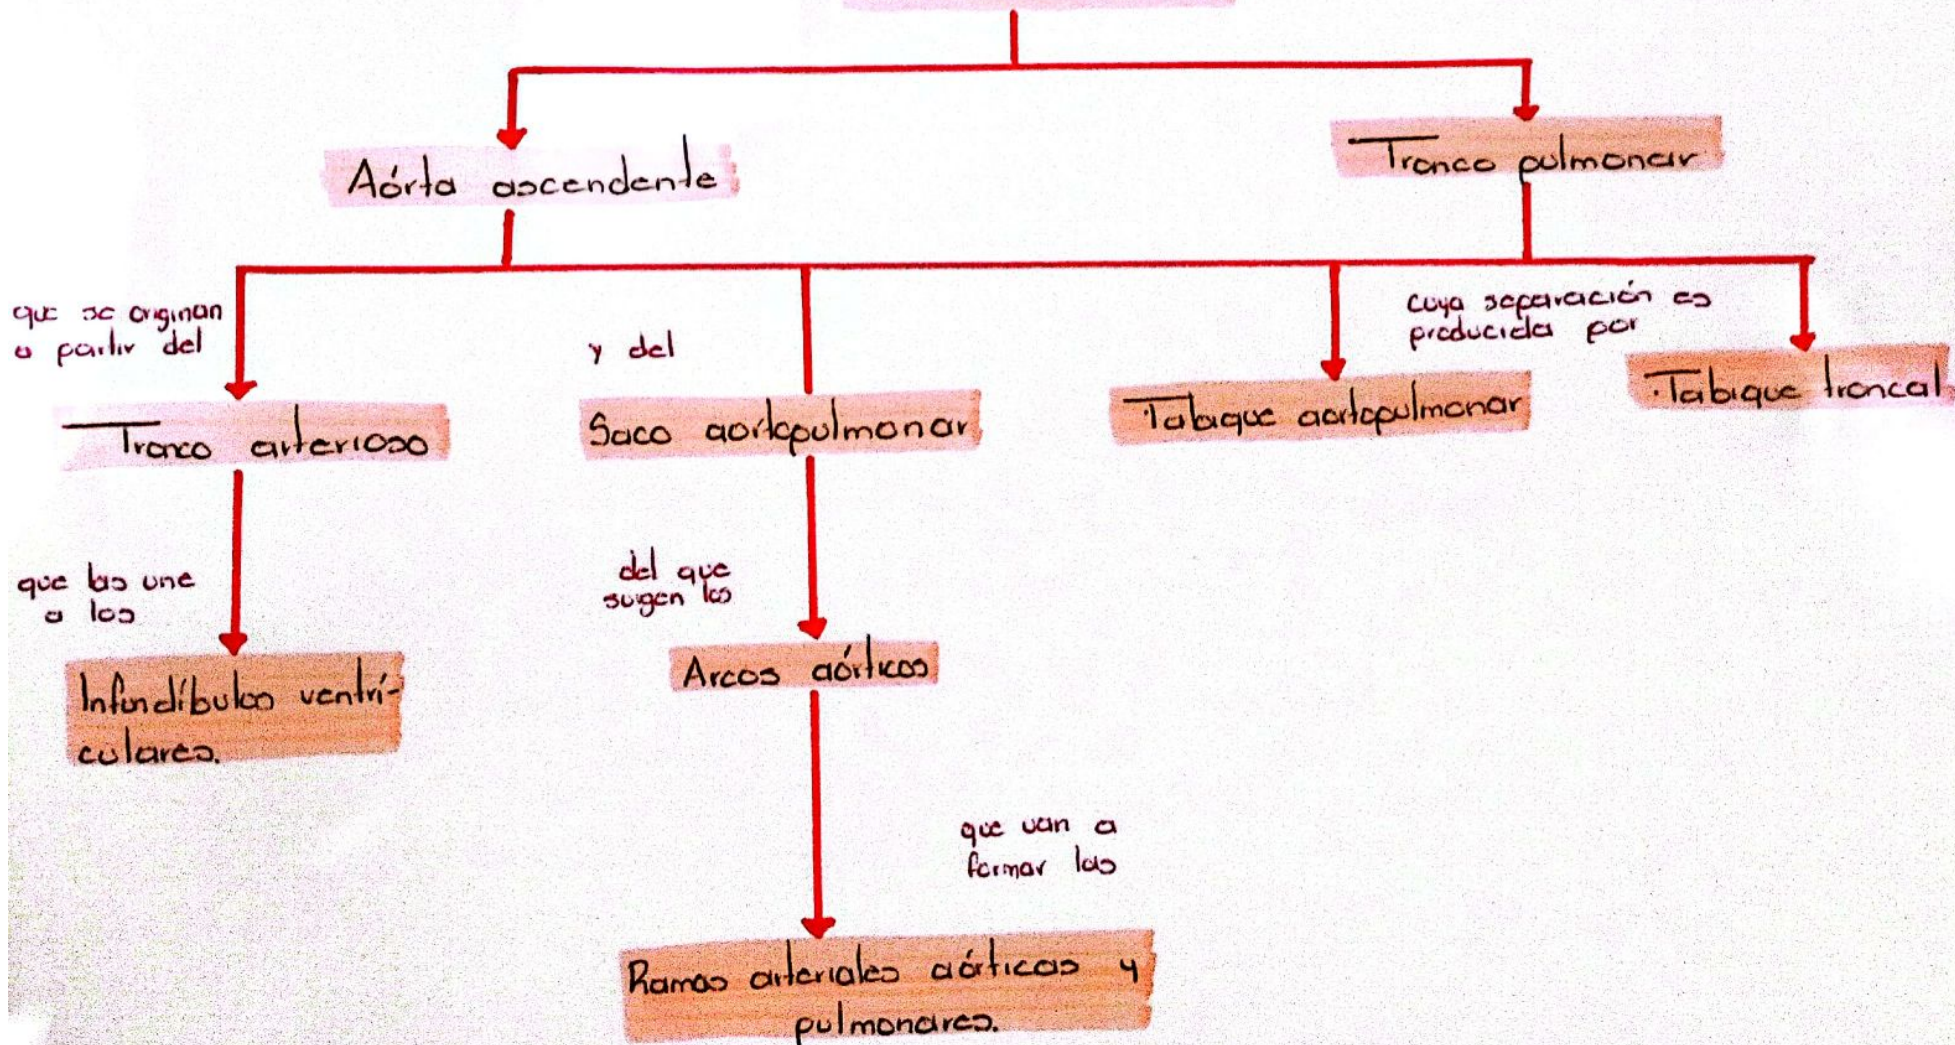 Aórta ascendente
Tronco pulmonar
que se originan
a partir del
y del
cuya separación es
producida por
Tronco arterioso
Saco aortopulmonar
Tabique aortopulmonar
Tabique troncal
que las une
a los
del que
surgen los
Infundíbulos ventrí-
culares.
Arcos aórticos
que van a
formar las
Ramas arteriales aórticas y
pulmonares.